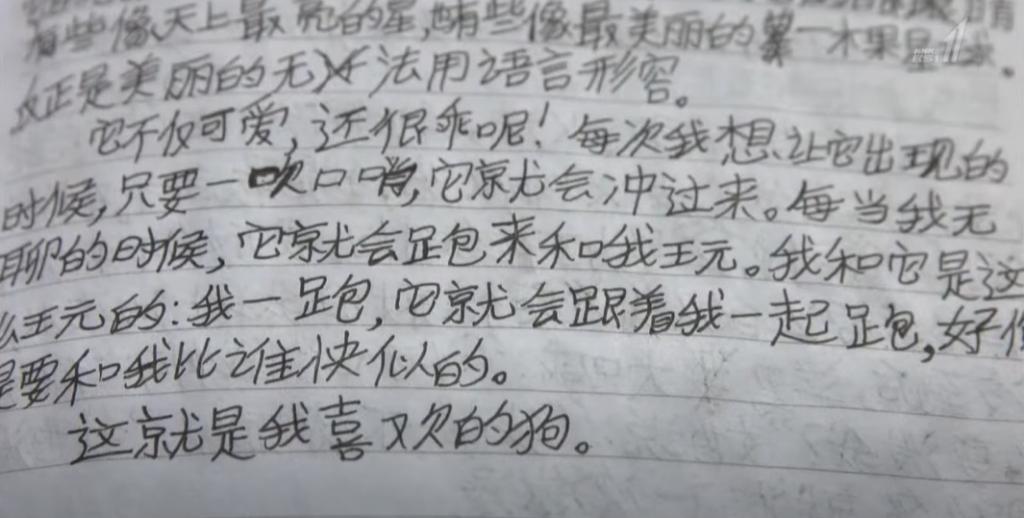 有些像天上最亮的星,有些像最美丽的第一木果星球。
正是美丽的无法用语言形容。
它不仅可爱,还很乖呢!每次我想让它出现的
时候,只要一吹口哨,它就会冲过来。每当我无
聊的时候,它就会跑来和我玩。我和它是这
么玩的:我一跑,它就会跟着我一起跑,好像
是要和我比谁快似的。
这就是我喜欢的狗。